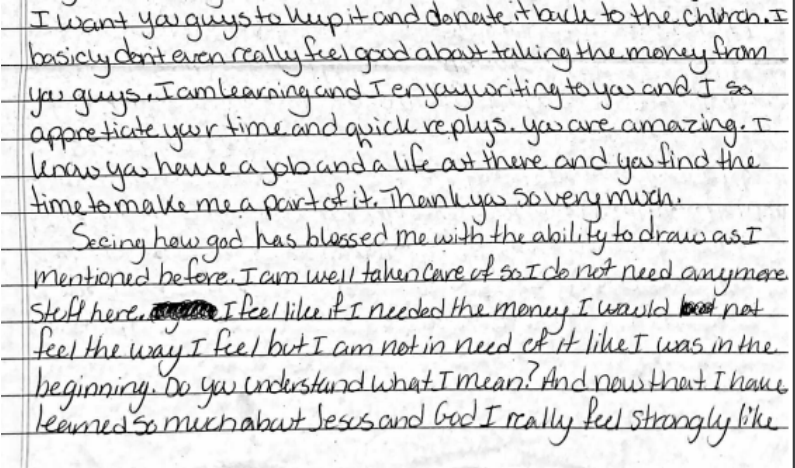 I want you guys to keep it and donate it back to the church. I
basicly don't even really feel good about taking the money from
you guys. I am learning and I enjoy writing to you and I so
appretiate your time and quick replys. You are amazing. I
know you have a job and a life out there and you find the
time to make me a part of it. Thank you so very much.
Seeing how god has blessed me with the ability to draw as I
mentioned before. I am well taken care of so I do not need anymore
stuff here. I feel like if I needed the money I would not
feel the way I feel but I am not in need of it like I was in the
beginning. Do you understand what I mean? And now that I have
learned so much about Jesus and God I really feel strongly like